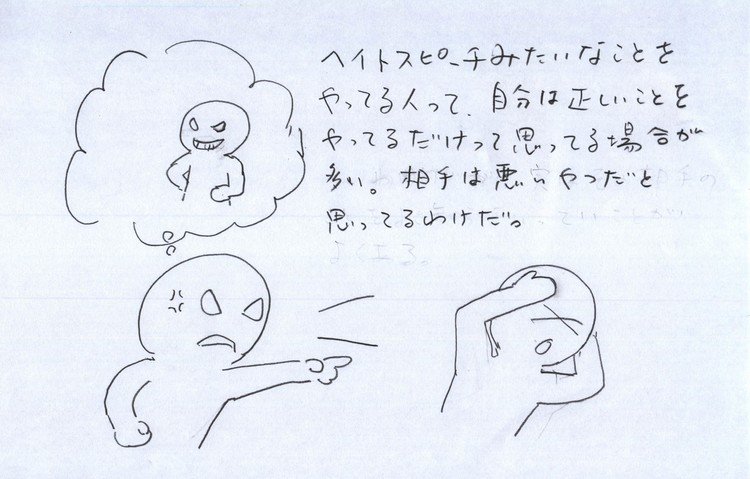 ヘイトスピーチみたいなことを
やってる人って、自分は正しいことを
やってるだけって思ってる場合が
多い。相手は悪いやつだと
思ってるわけだ。